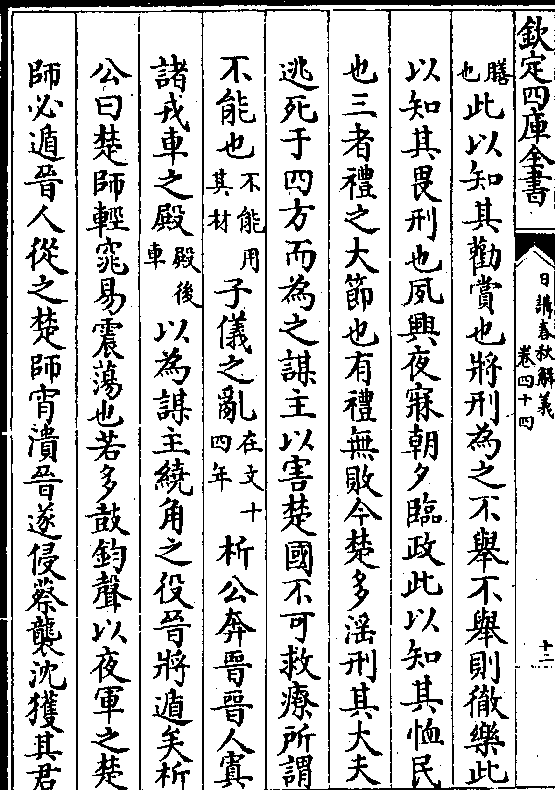 欽定四庫全書
日講春秋解義
卷四十四
十二
膳也此以知其勸賞也將刑為之不舉不舉則徹樂此
以知其畏刑也夙興夜寐朝夕臨政此以知其恤民
也三者禮之大節也有禮無敗今楚多淫刑其大夫
逃死于四方而為之謀主以害楚國不可救療所謂
不能也不能用其材子儀之亂在文十四年析公奔晉晉人寘
諸戎車之殿殿後車以為謀主繞角之役晉將遁矣析
公曰楚師輕窕易震蕩也若多鼓鈞聲以夜軍之楚
師必遁晉人從之楚師宵潰晉遂侵蔡襲沈獲其君